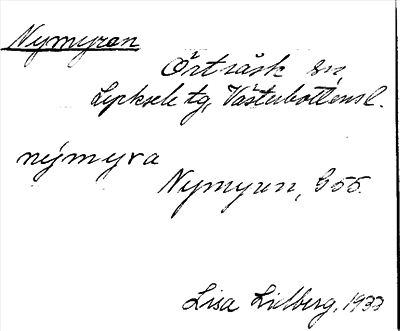 Nymyran
Örträsk sn,
Lycksele tg, Västerbottens l.
nýmyra
Nymyren, G55.
Lisa Lidberg, 1933